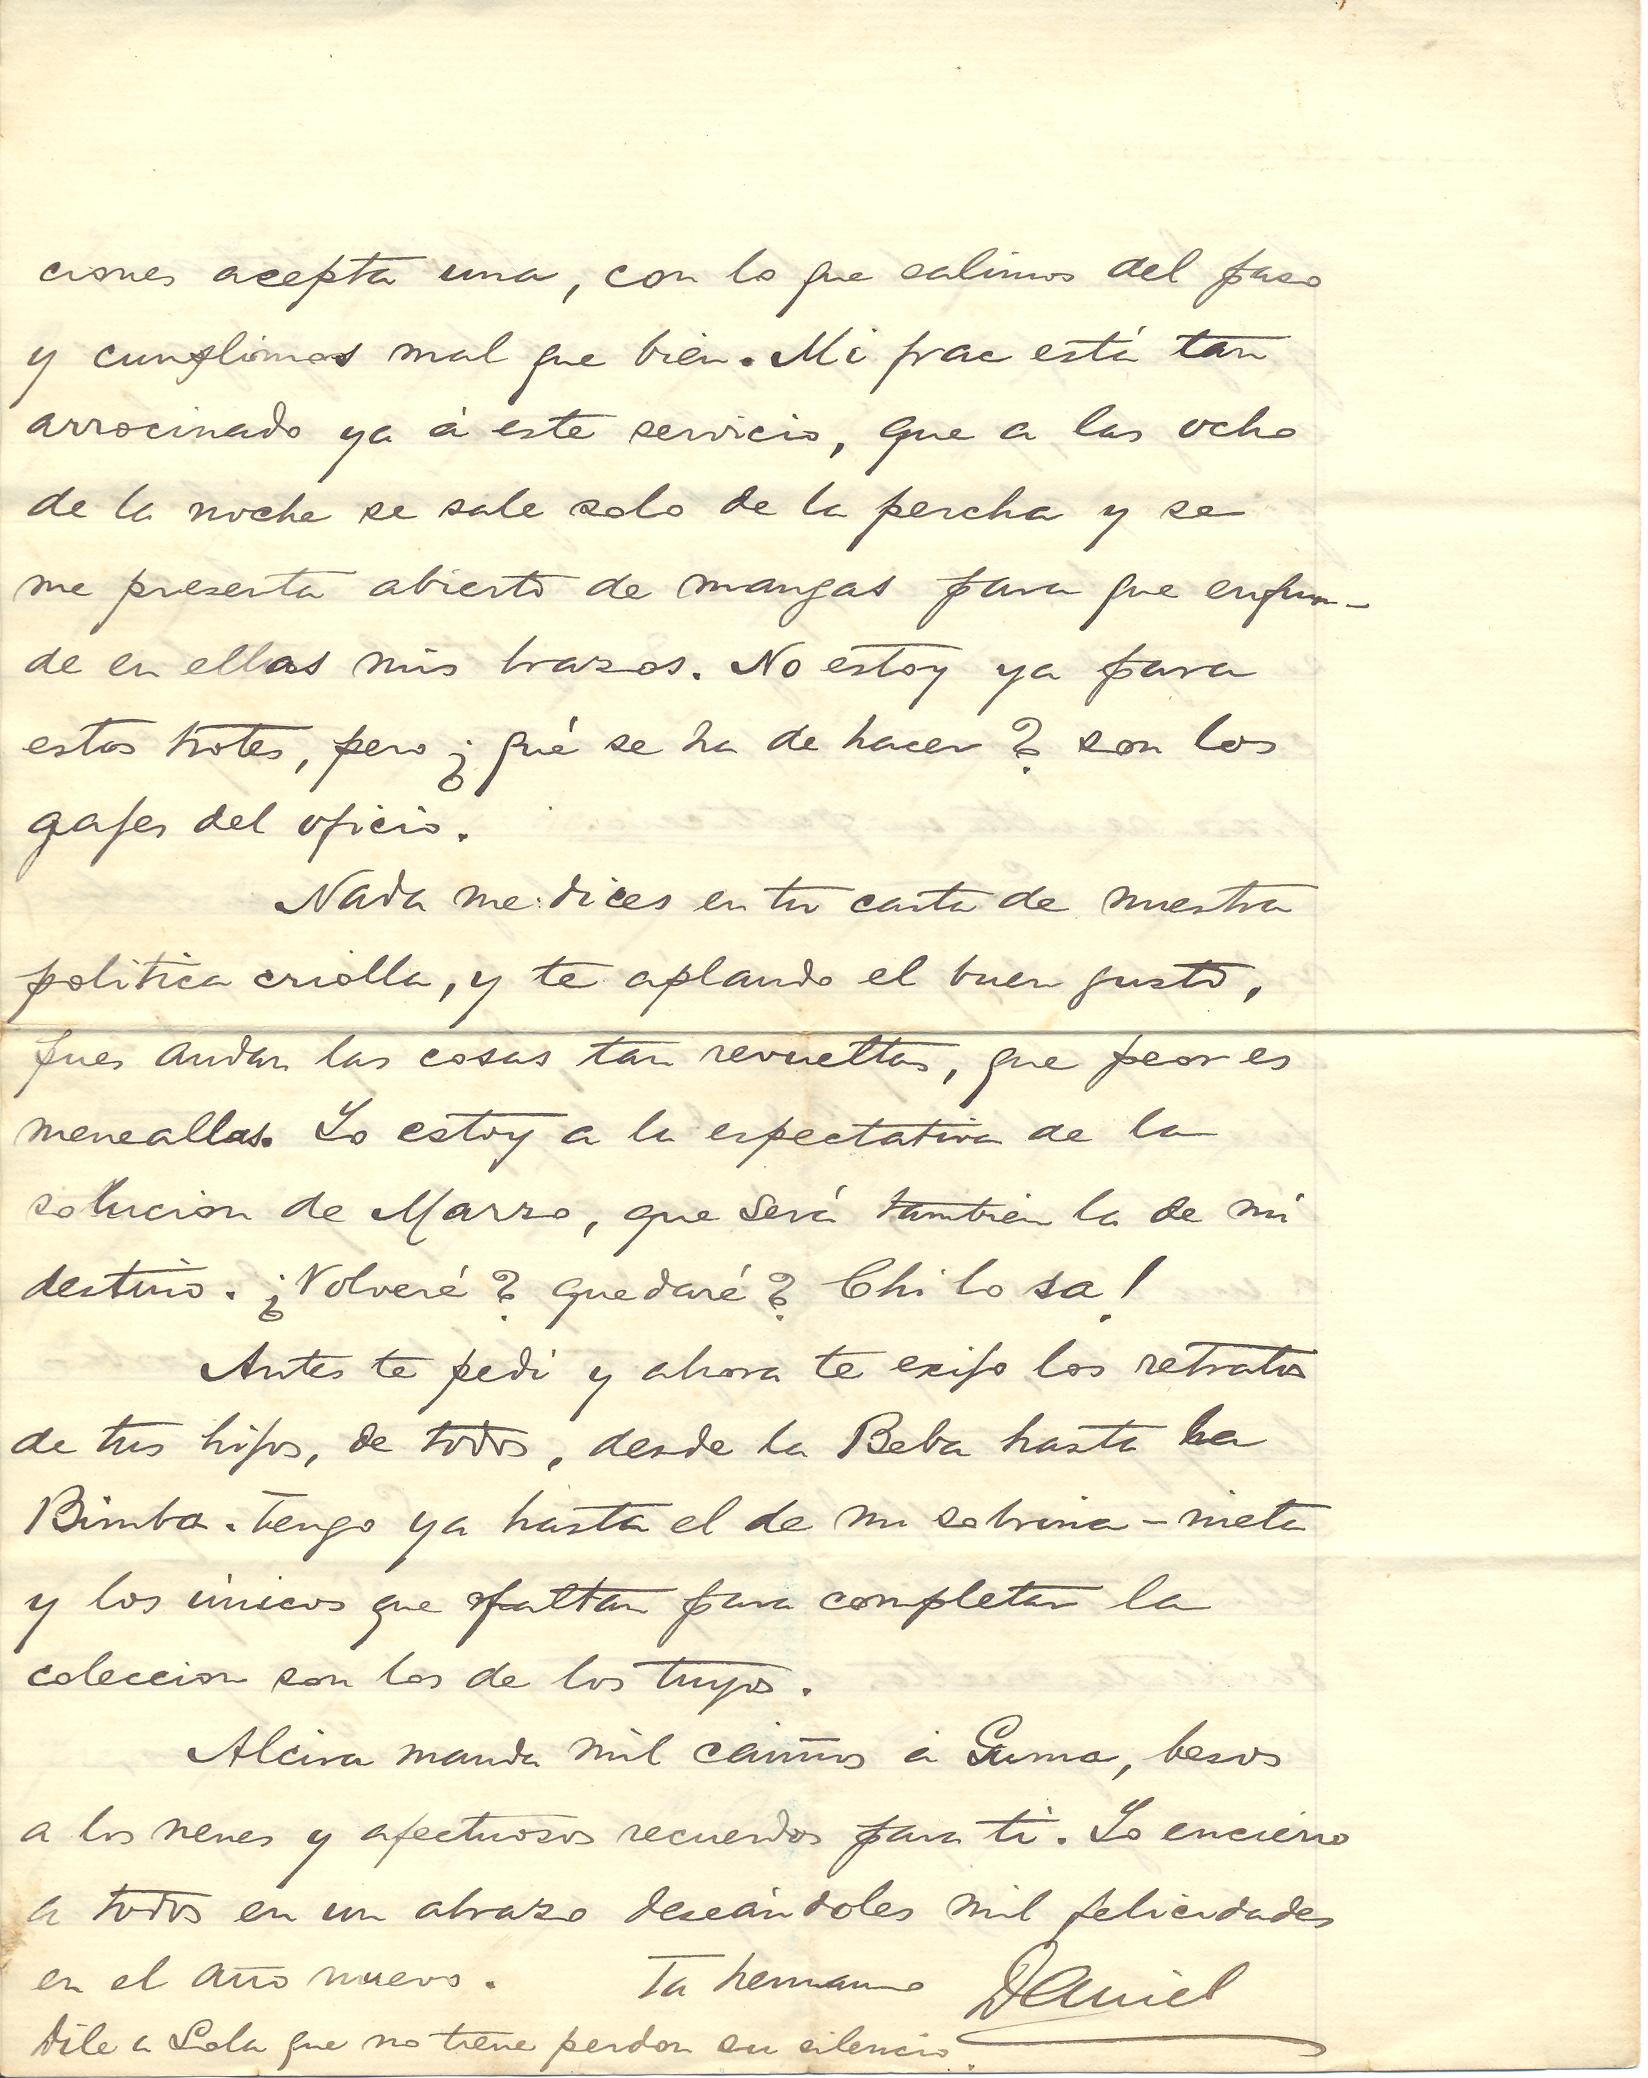 ciones acepta una, con lo que salimos del paso
y cumplimos mal que bien. Mi frac está tan
arrocinado ya á este servicio, que a las ocho
de la noche se sale solo de la percha y se
me presenta abierto de mangas para que enfun-
de en ellas mis brazos. No estoy ya para
estos trotes, pero ¿qué se ha de hacer? son los
gajes del oficio.
Nada me dices en tu carta de nuestra
politica criolla, y te aplaudo el buen gusto,
pues andan las cosas tan revueltas, que peor es
meneallas. Yo estoy a la espectativa de la
solucion de Marzo, que será tambien la de mi
destino. ¿Volveré? quedaré? Chi lo sa!
Antes te pedi y ahora te exijo los retratos
de tus hijos, de todos, desde la Beba hasta la
Bimba. Tengo ya hasta el de mi sobrina-nieta
y los únicos que faltan para completar la
coleccion son los de los tuyos.
Alcira manda mil cariños á Guma, besos
a los nenes y afectuosos recuerdos para ti. Yo encierro
a todos en un abrazo deseándoles mil felicidades
en el año nuevo. Tu hermano Daniel
Dile a Lola que no tiene perdon su silencio.